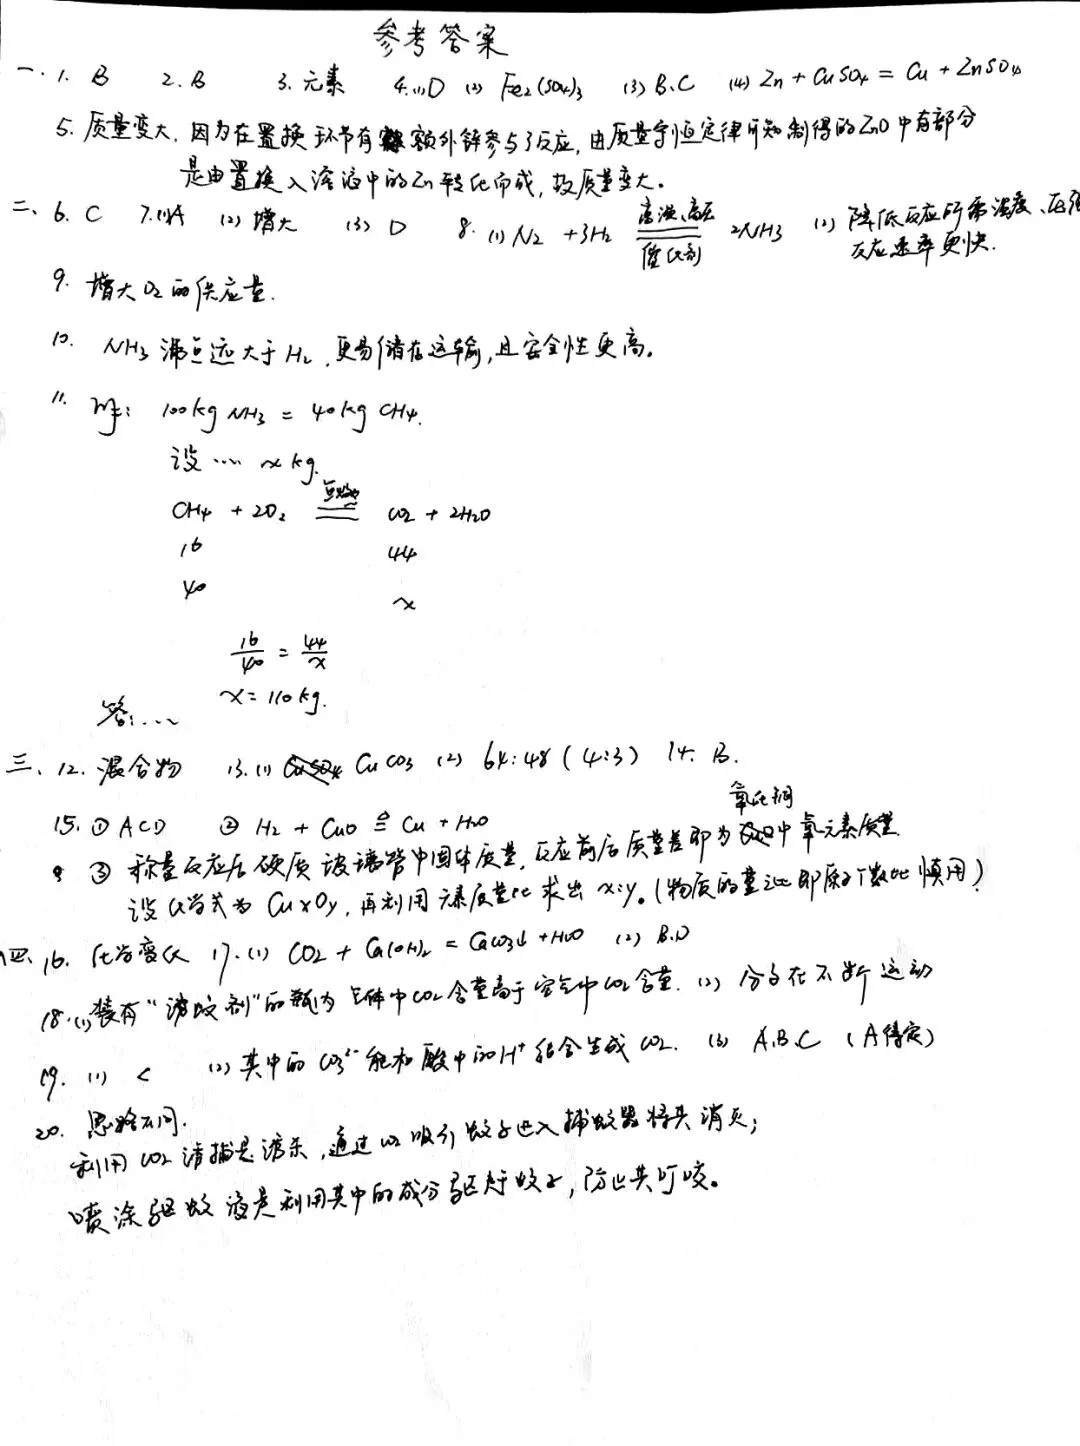 参考答案
一.1. B 2. B 3. 元素 4.(1)D (2) Fe₂(SO₄)₃ (3) B.C (4) Zn + CuSO₄ = Cu + ZnSO₄
5. 质量变大.因为在置换环节有额外锌参与了反应,由质量守恒定律可知制得的ZnO中有部分
是由置换入溶液中的Zn转化而成,故质量变大。
二、6. C 7.(1)A (2) 增大 (3) D 8. (1) N₂ + 3H₂ 高温、高压 催化剂 2NH₃ (2) 降低反应所需温度、压强
反应速率更快.
9. 增大O₂的供应量.
10. NH₃沸点远大于H₂,更易储存运输,且安全性更高。
11. 解: 100kg NH₃ = 40kg CH₄.
设…… x kg.
CH₄ + 2O₂ 点燃 CO₂ + 2H₂O
16 44
40 x
16/40 = 44/x
x = 110kg.
答:……
三、12. 混合物 13.(1) CuCO₃ (2) 64:48 (4:3) 14. B.
15. ① ACD ② H₂ + CuO ≜ Cu + H₂O
③ 称量反应后硬质玻璃管中固体质量,反应前后质量差即为氧化铜中氧元素质量
设化学式为 CuxOy,再利用元素质量比求出x:y。(物质的量之比即原子个数比慎用)
四、16. 化学变化 17.(1) CO₂ + Ca(OH)₂ = CaCO₃↓ + H₂O (2) B.D
18.(1)装有“诱蚊剂”的瓶内气体中CO₂含量高于空气中CO₂含量. (2) 分子在不断运动
19. (1) < (2) 其中的CO₃²⁻能和酸中的H⁺结合生成CO₂. (3) A.B.C (A待定)
20. 思路不同.
利用CO₂诱捕是诱杀,通过CO₂吸引蚊子进入捕蚊器将其消灭;
喷涂驱蚊液是利用其中的成分驱赶蚊子,防止其叮咬。